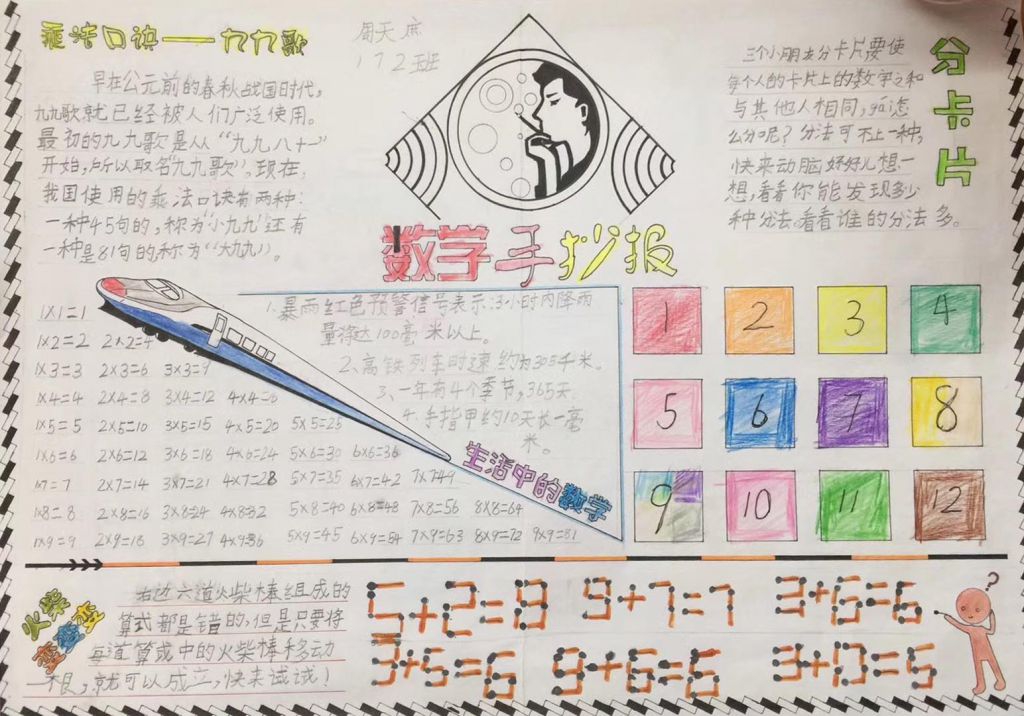 乘法口诀——九九歌
周天
172班
早在公元前的春秋战国时代，
九九歌就已经被人们广泛使用。
最初的九九歌是从“九九八十一”
开始，所以取名“九九歌”，现在，
我国使用的乘法口诀有两种：
一种45句的，称为“小九九”还有
一种是81句的称为“大九九”。
三个小朋友分卡片要使
每个人的卡片上的数字之和
与其他人相同，该怎
么分呢？分法可不止一种，
快来动脑好好儿想一
想，看看你能发现多少
种分法。看看谁的分法多。
分卡片
数学手抄报
1×1=1
1×2=2 2×2=4
1×3=3 2×3=6 3×3=9
1×4=4 2×4=8 3×4=12 4×4=16
1×5=5 2×5=10 3×5=15 4×5=20 5×5=25
1×6=6 2×6=12 3×6=18 4×6=24 5×6=30 6×6=36
1×7=7 2×7=14 3×7=21 4×7=28 5×7=35 6×7=42 7×7=49
1×8=8 2×8=16 3×8=24 4×8=32 5×8=40 6×8=48 7×8=56 8×8=64
1×9=9 2×9=18 3×9=27 4×9=36 5×9=45 6×9=54 7×9=63 8×9=72 9×9=81
1、暴雨红色预警信号表示：3小时内降雨
量将达100毫米以上。
2、高铁列车时速约为305千米。
3、一年有4个季节，365天。
4、手指甲约10天长一毫
米。
生活中的数学
1 2 3 4
5 6 7 8
9 10 11 12
火柴
右边六道火柴棒组成的
算式都是错的，但是只要将
每道算式中的火柴棒移动
一根，就可以成立，快来试试！
5+2=8 9+7=7 3+6=6
3+5=6 9+6=6 3+0=5
?